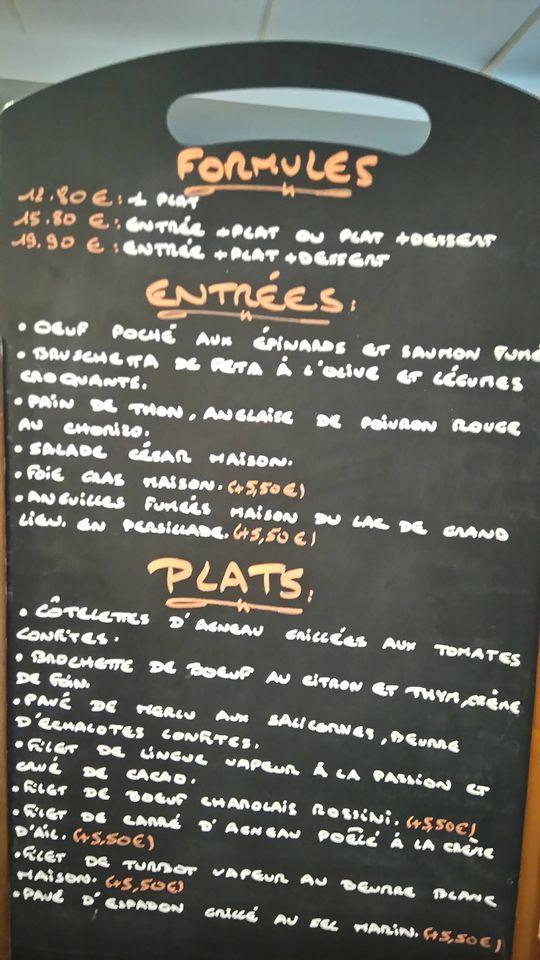 FORMULES
12.80 € : 1 PLAT
15.80 € : ENTRÉE + PLAT OU PLAT + DESSERT
19.90 € : ENTRÉE + PLAT + DESSERT
ENTRÉES :
• OEUF POCHÉ AUX ÉPINARDS ET SAUMON FUMÉ
• BRUSCHETTA DE FETA À L'OLIVE ET LÉGUMES
CROQUANTS.
• PAIN DE THON, ANGLAISE DE POIVRON ROUGE
AU CHORIZO.
• SALADE CÉSAR MAISON.
• FOIE GRAS MAISON. (+5,50€)
• ANGUILLES FUMÉES MAISON DU LAC DE GRAND
LIEU. EN PERSILLADE. (+5,50€)
PLATS :
• CÔTELETTES D'AGNEAU GRILLÉES AUX TOMATES
CONFITES.
• BROCHETTE DE BOEUF AU CITRON ET THYM, CRÈME
DE FOIN.
• PAVÉ DE MERLU AUX SALICORNES, BEURRE
D'ECHALOTES CONFITES.
• FILET DE LINGUE VAPEUR À LA PASSION ET
GRUÉ DE CACAO.
• FILET DE BOEUF CHAROLAIS ROSSINI. (+5,50€)
• FILET DE CARRÉ D'AGNEAU POÊLÉ À LA CRÈME
D'AIL. (+5,50€)
• FILET DE TURBOT VAPEUR AU BEURRE BLANC
MAISON. (+5,50€)
• PAVÉ D'ESPADON GRILLÉ AU SEL MARIN. (+5,50€)